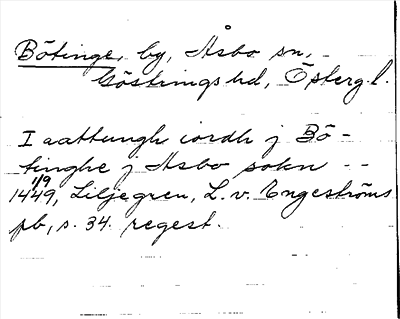 Bötinge, by, Åsbo sn,
Göstrings hd, Österg. l.
I aattungh iordh j Bö-
tinghe j Asbo sokn --
1/9
1449, Liljegren, L. v. Engeströms
pb, s. 34. regest.